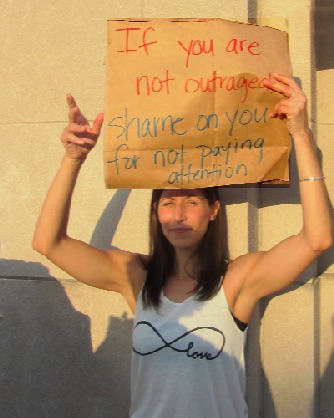 If you are
not outraged
shame on you
for not paying
attention
love